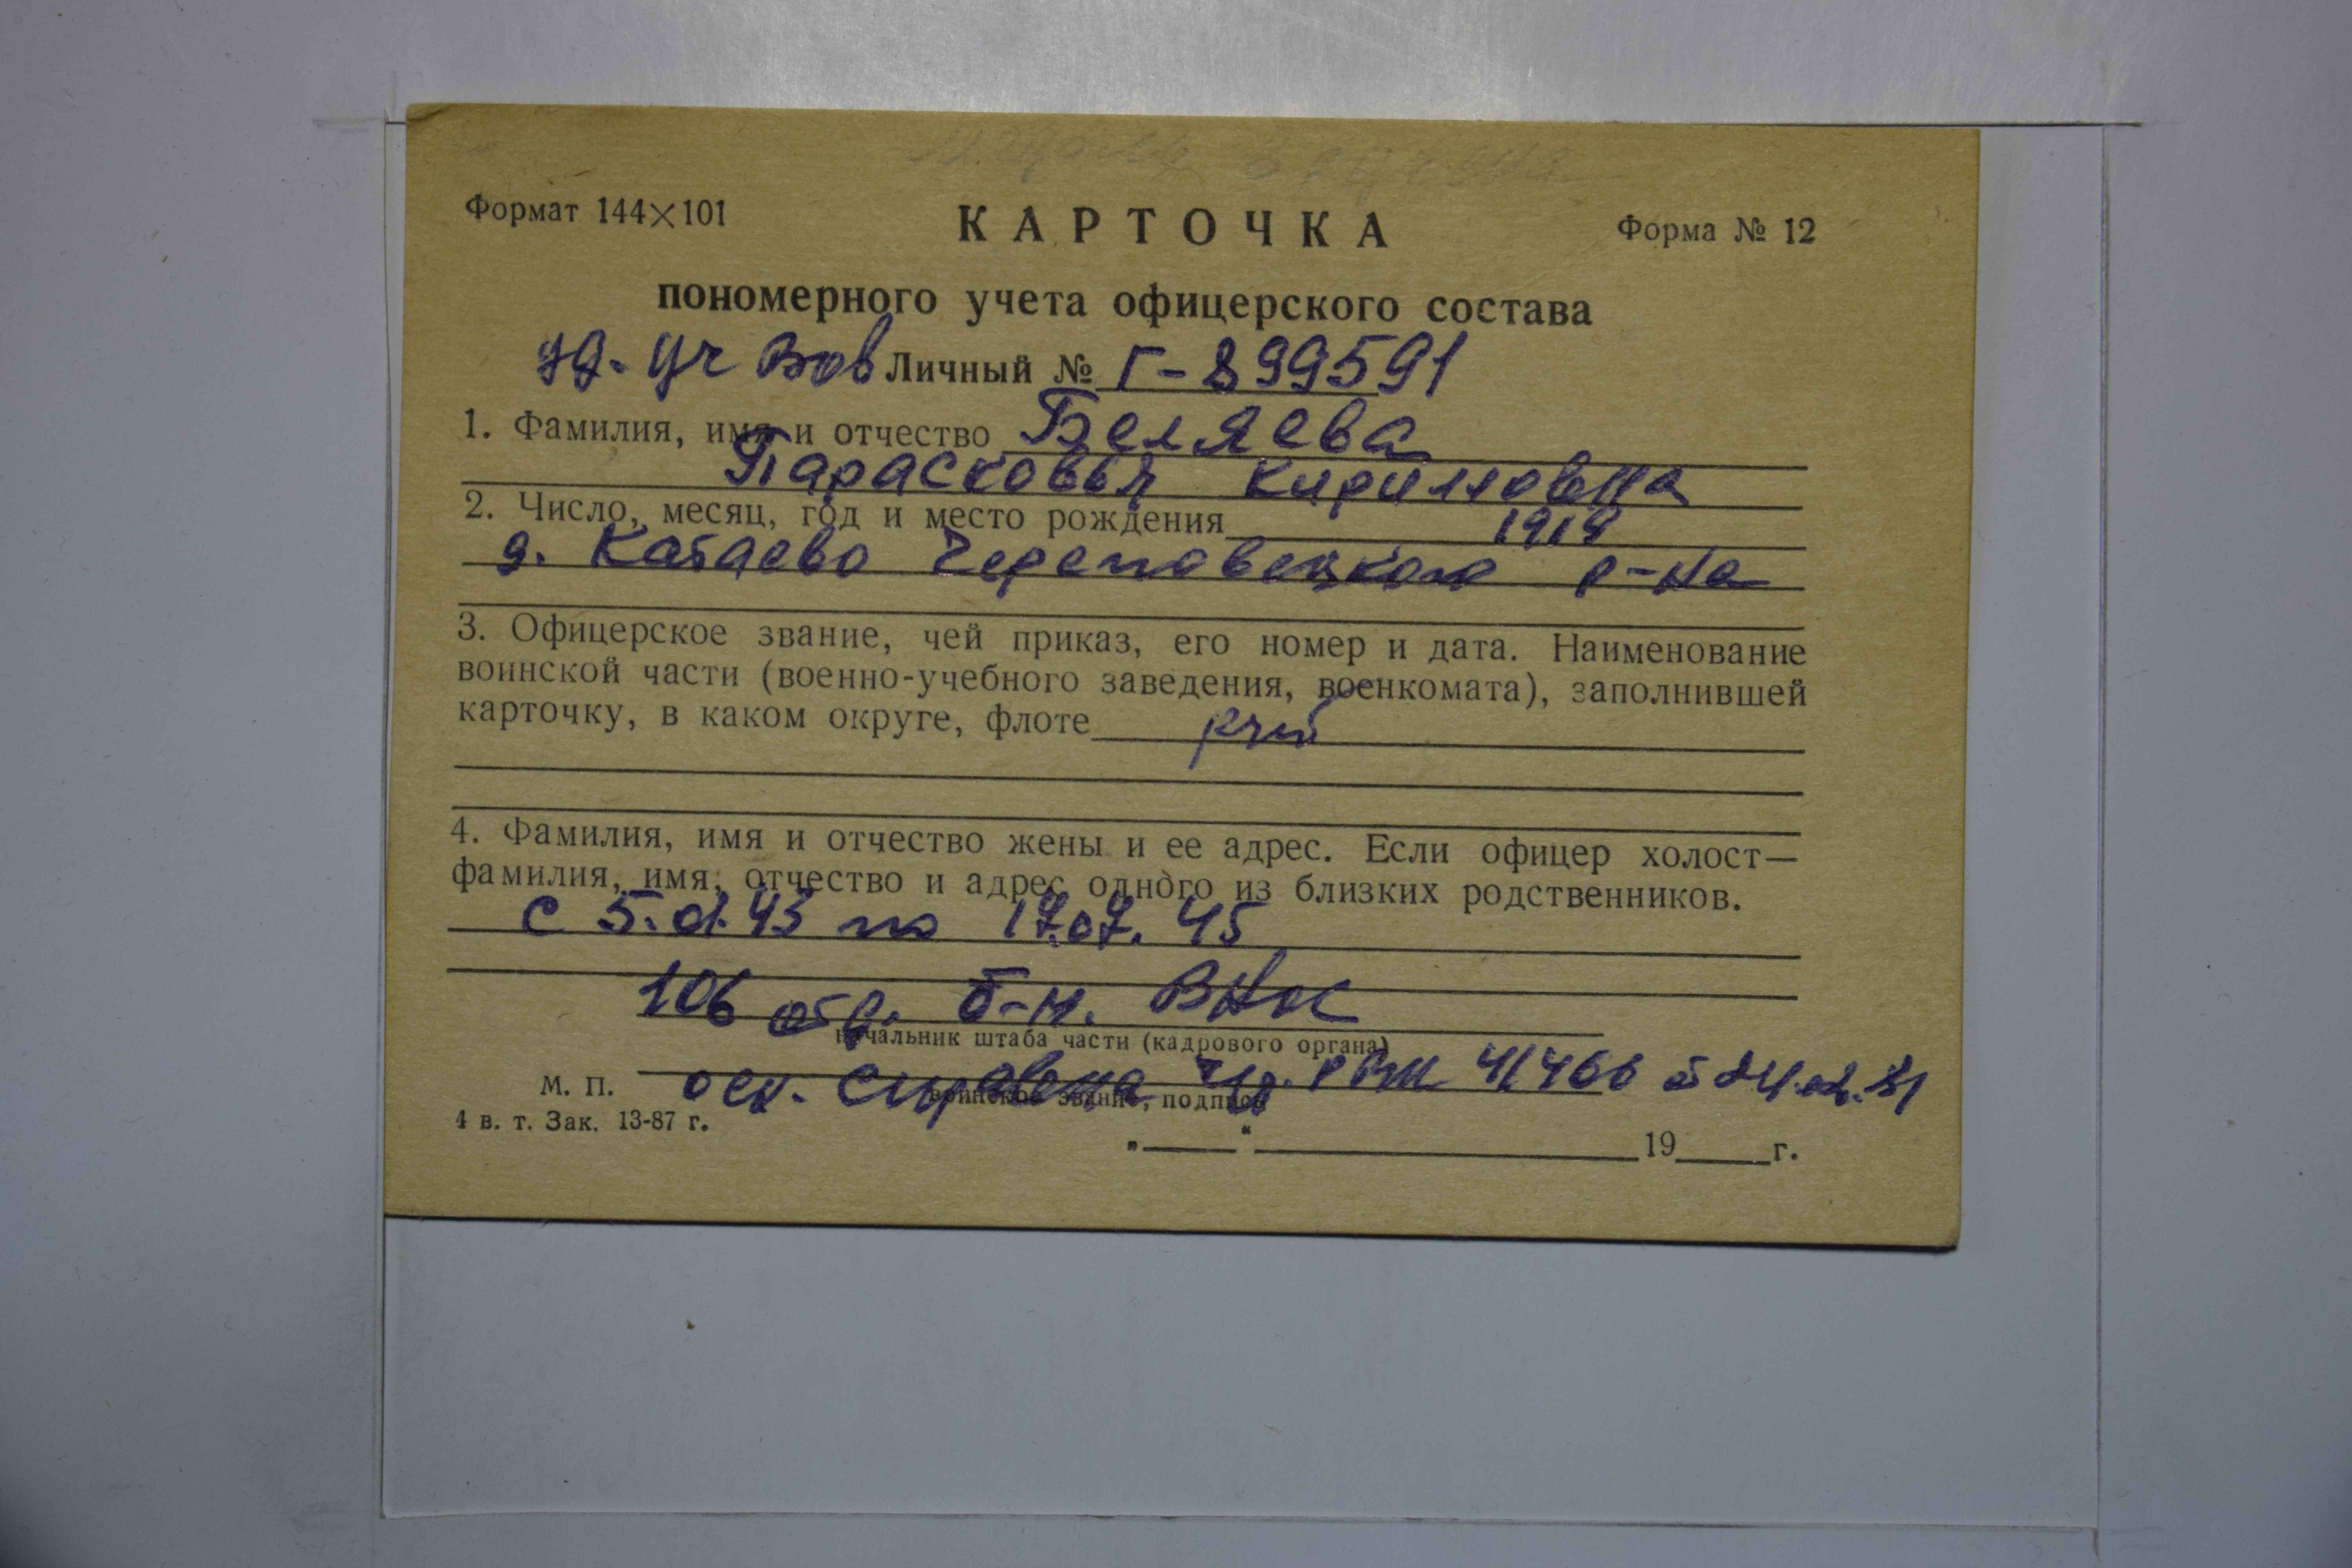 Формат 144×101
КАРТОЧКА
Форма № 12
пономерного учета офицерского состава
уд. Уч ВОв Личный № Г-899591
1. Фамилия, имя и отчество Беляева
Парасковья Кирилловна
2. Число, месяц, год и место рождения 1919
д. Катаево Череповецкого р-на
3. Офицерское звание, чей приказ, его номер и дата. Наименование
воинской части (военно-учебного заведения, военкомата), заполнившей
карточку, в каком округе, флоте
4. Фамилия, имя и отчество жены и ее адрес. Если офицер холост—
фамилия, имя, отчество и адрес одного из близких родственников.
с 5. 43 по 17.07.45
106 отд. б-н. ВНОС
начальник штаба части (кадрового органа)
М. П. осн. Справка 41466
воинское звание, подпись
4 в. т. Зак. 13-87 г.
„ “ 19 г.